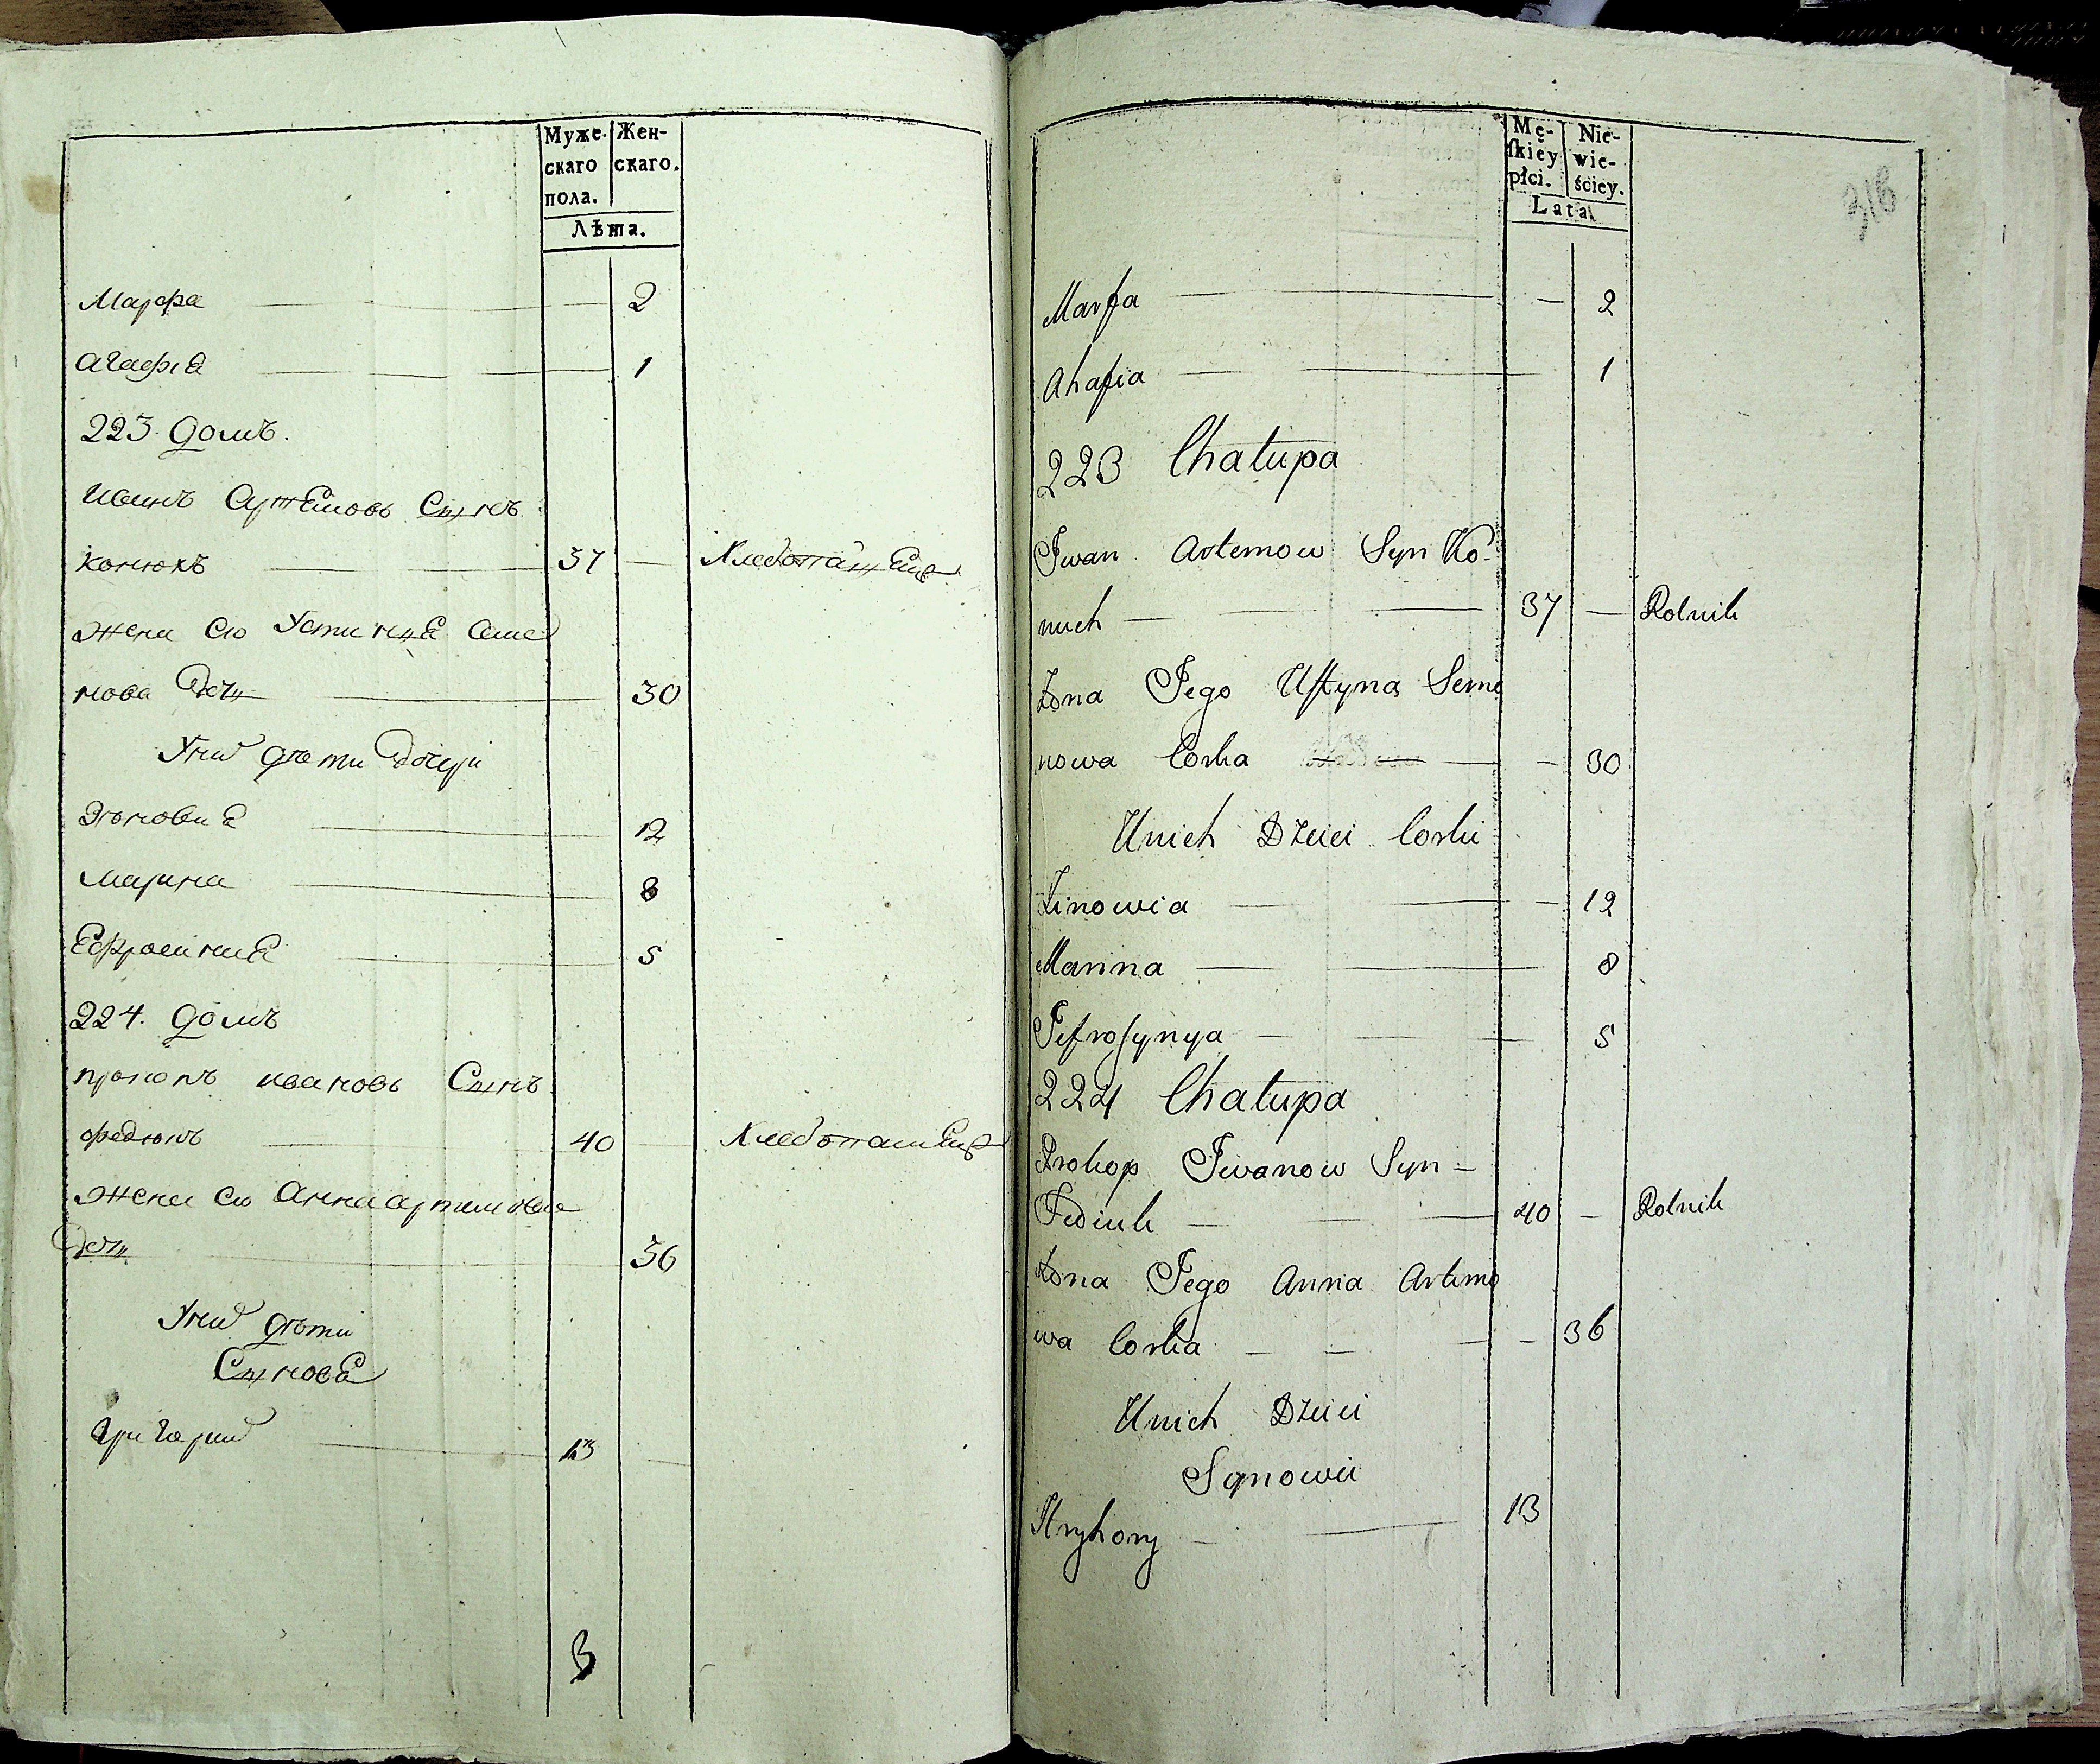 Муже- Жен-
скаго скаго.
пола.
Лѣта.
Марфа 2
агафіа 1
223. домъ.
Иванъ Артемовъ Сынъ
конюхъ 37 — Хлебопашецъ
жена Его Устинıа Семе
нова дочь 30
У них дѣти дочери
Зѣновиа 12
Марина 8
Ефросиниа 5
224. домъ
прокопъ ивановъ Сынъ
федюкъ 40 Хлебопашецъ
жена Его Анна артемова
дочь 36
У них дѣти
Сыновıа
Григорий 13
3
Mę- Nie-
ſkiey wie-
płci. ściey.
Lata
316
Marfa — 2
Ahafia 1
223 Chałupa
Jwan Artemow Syn Ko-
nuch — 37 — Rolnik
Żona Jego Uſtyna Seme
nowa Corka — — 30
Unich Dzieci Corki
Zinowia — 12
Marina — 8
Jefroſynya — 5
224 Chałupa
Prokop Jwanow Syn —
Fediuk — 40 — Rolnik
Żona Jego Anna Artemo
wa Corka — — 36
Unich Dzieci
Synowie
Hryhory — 13